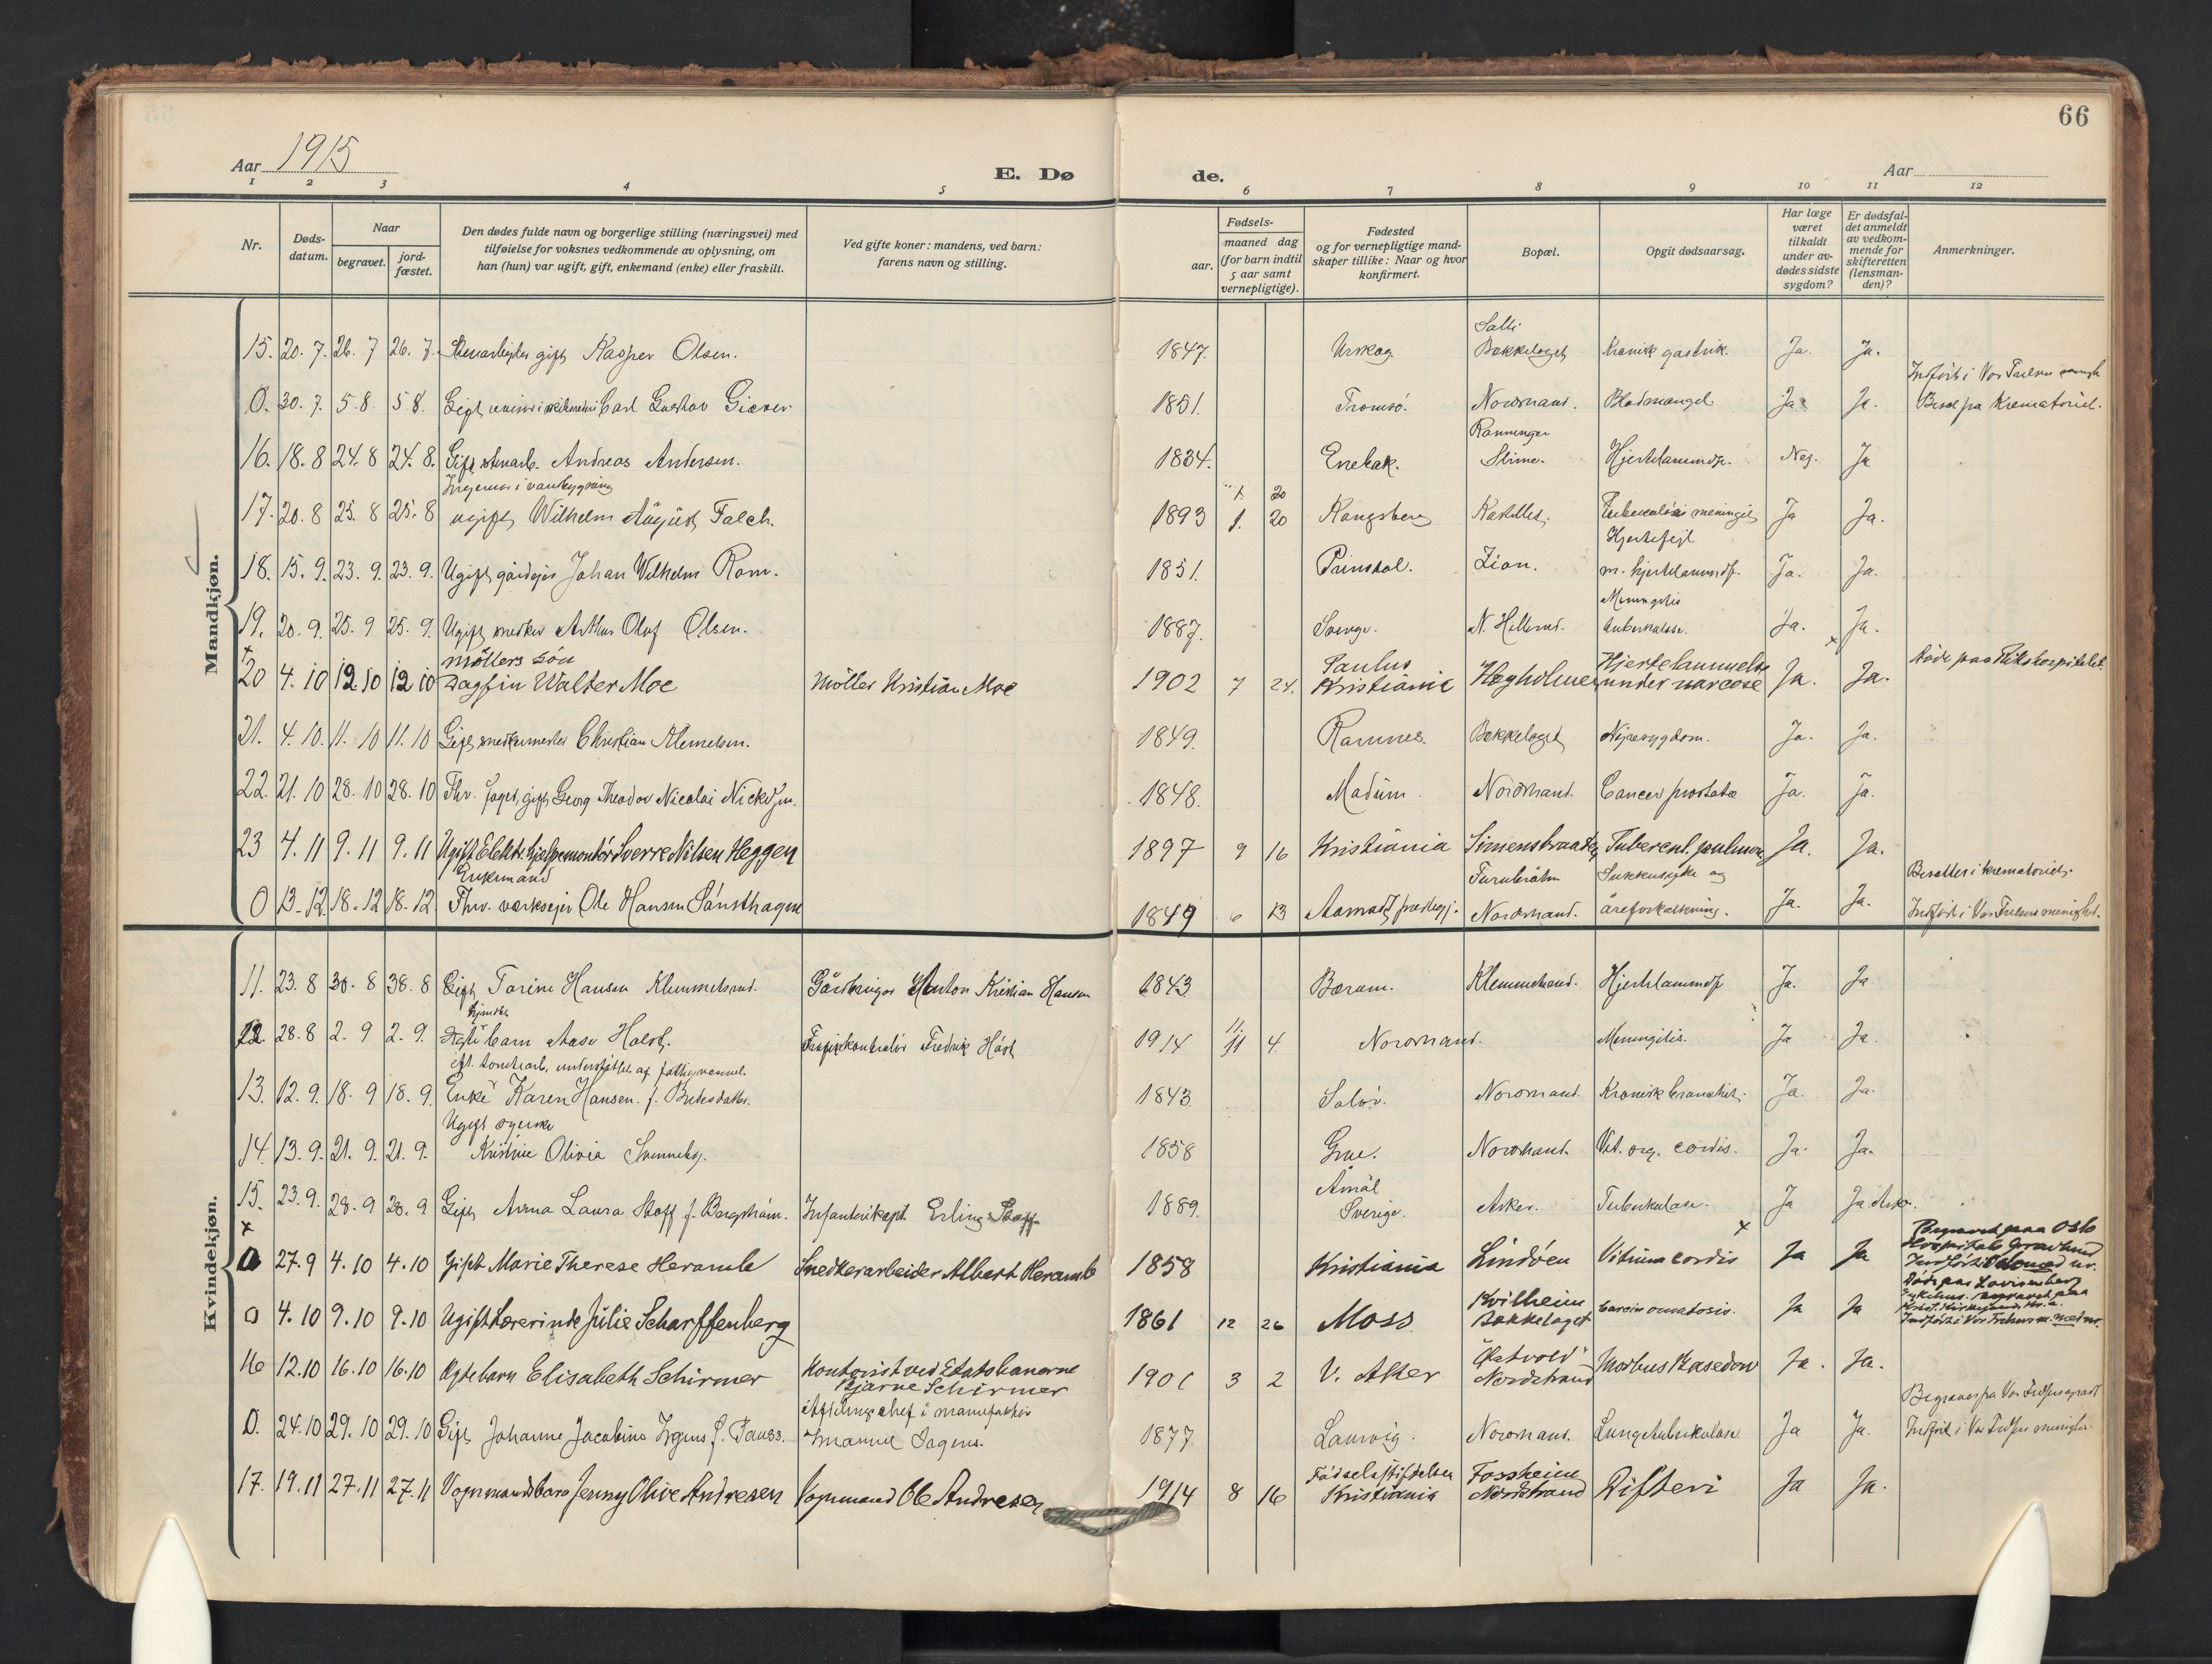 66
Aar 1915
E. Dø de.
Aar
1 2 3 4 5 6 7 8 9 10 11 12
Nr.
Døds-datum.
Naar
begravet.
jord-fæstet.
Den dødes fulde navn og borgerlige stilling (næringsvei) med
tilføielse for voksnes vedkommende av oplysning, om
han (hun) var ugift, gift, enkemand (enke) eller fraskilt.
Ved gifte koner: mandens, ved barn:
farens navn og stilling.
Fødsels-
aar.
maaned dag
(for barn indtil
5 aar samt
vernepligtige).
Fødested
og for vernepligtige mand-
skaper tillike: Naar og hvor
konfirmert.
Bopæl.
Opgit dødsaarsag.
Har læge
været
tilkaldt
under av-
dødes sidste
sygdom?
Er dødsfal-
det anmeldt
av vedkom-
mende for
skifteretten
(lensman-
den)?
Anmerkninger.
Mandkjøn.
15. 20. 7. 26. 7 26. 7. gift Kasper Olsen. 1847. Urskog. Bækkelaget Kronik gastrik. Ja. Ja.
0. 30. 7. 5. 8. 5. 8. Gift Carl Gustav Giæver 1851. Tromsö. Nordstrand. Blodmangel. Ja. Ja. Indført i Vor Frelsers menigh. Bisat paa Krematoriet.
16. 18. 8 24. 8 24. 8. Gift stenarb. Andreas Andersen. 1834. Enebak. Hjertelammelse. Nej. Ja
17. 20. 8 25. 8 25. 8 Ingeniør i vandbygning ugift Wilhelm August Falch. 1893 1. 20 Kongsberg Kastellet. Tuberculös meningit Ja Ja.
18. 15. 9. 23. 9. 23. 9. Ugift gårdejer Johan Wilhelm Rom. 1851. Prinsdal. Zion. Hjertefejl m. hjertelammelse. Ja. Ja.
19. 20. 9. 25. 9 25. 9. Ugift snedker Arthur Oluf Olsen. 1887. Sverige. Meningitis tuberkulose. Ja. Ja.
20 4. 10 12 10 12 10 Møllers sön Dagfin Walter Moe Møller Kristian Moe 1902 7 24. Paulus Kristiania Hegholmen Hjertelammelse under narcose Ja. Ja. Døde paa Rikshospitalet.
21. 4. 10. 11. 10 11. 10 Gift snedkermester Christian Klemetsen. 1849. Ramnes. Bækkelaget Nyresygdom. Ja. Ja.
22. 21. 10 28. 10 28. 10 Fhv. foged, gift Georg Theodor Nicolai 1848. Modum Nordstrand. Cancer prostatae Ja. Ja.
23 4. 11 9. 11 9. 11 Ugift Elektr. hjelpemontör Sverre Nilsen Heggen 1897 9 16 Kristiania Simensbraaten Tubercul. pulmon. Ja. Ja.
0 13. 12. 18. 12 18. 12. Enkemand Fhv. værksejer Ole Hansen 1849 6 13 Aamot Nordstrand. Sukkersyke og åreforkalkning. Ja. Ja. Bisattes i krematoriet. Indført i Vor Frelsers menighed.
Kvindekjøn.
11. 23. 8 30. 8 30. 8 Gift Torine Hansen Klemmetsrud. Gårdbruger Anton Kristian Hansen 1843 Bærum. Klemmetsrud. Hjertelammelse Ja. Ja
12. 28. 8 2. 9 2. 9. Ægte barn Aase Holst. Fredrik Holst 1914 11 4. Nordstrand. Meningitis. Ja Ja.
13. 12. 9. 18. 9 18. 9. understøttet af fattigvæsenet. Enke Karen Hansen f. 1843 Solør. Nordstrand. Kronisk bronchit. Ja. Ja.
14. 13. 9. 21. 9. 21. 9. Ugift syerske Kristine Olivia 1858 Grue. Nordstrand. Vit. org. cordis. Ja. Ja.
15. 23. 9. 28. 9 28. 9 Gift Anna Laura Stoff f. Infanterikapt. Erling Stoff 1889. Åmål Sverige. Asker. Tuberkulose. Ja Ja
0 27. 9 4. 10 4. 10 Gift Marie Therese Heramb Snedkerarbeider Albert Heramb 1858 Kristiania Lindöen Vitium cordis Ja Ja Begravet paa Oslo Hospitals Gravlund
0 4. 10 9. 10 9. 10 Ugift lærerinde Julie Scharffenberg 1861 12 26 Moss Kvilheim Bækkelaget Carcinomatosis. Ja Ja Døde paa Lovisenberg
16 12. 10 16. 10 16. 10 Ægte barn Elisabeth Schirmer Kontorist ved Statsbanerne Bjarne Schirmer 1901 3 2 V. Aker Nordstrand Morbus Basedow Ja. Ja.
0. 24. 10 29. 10 29. 10 Gift Johanne Jacobine f. Afdelingschef i manufaktur 1877. Laurvig. Nordstrand. Lungetuberkulose Ja Ja. Begraves paa Vor Frelsers gravl. Indført i Vor Frelsers menighed.
17. 19. 11 27. 11 27. 11 Vognmandsbarn Jenny Olive Andresen Vognmand Ole Andresen 1914 8 16 Fødselsstiftelsen Kristiania Fossheim Nordstrand Difteri Ja Ja.